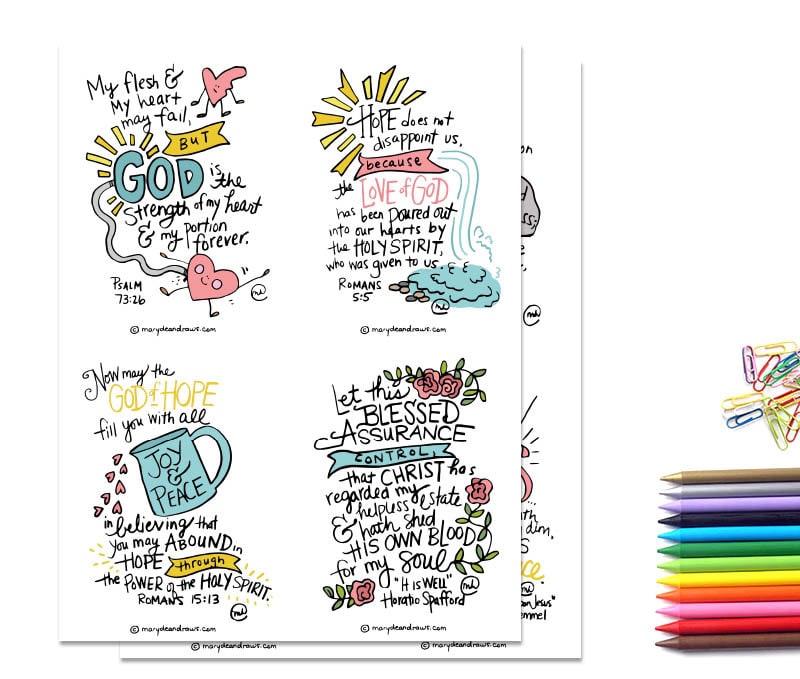 My flesh &
My heart
may fail,
BUT
GOD is
the
Strength of my heart
& my portion
forever.
PSALM
73:26
© marydeandraws.com
HOPE does not
disappoint us,
because
the LOVE of GOD
has been poured out
into our hearts by
the HOLY SPIRIT,
who was given to us.
ROMANS
5:5
© marydeandraws.com
Now may the
GOD of HOPE
fill you with all
JOY
&
PEACE
in believing that
you may ABOUND in
HOPE through
the POWER of the HOLY SPIRIT.
ROMANS 15:13
© marydeandraws.com
Let this
BLESSED
ASSURANCE
CONTROL,
that CHRIST has
regarded my
helpless estate
& hath shed
HIS OWN BLOOD
for my soul
"IT IS WELL"
Horatio Spafford
© marydeandraws.com
on
dim,
Jesus"
© marydeandraws.com
© marydeandraws.com